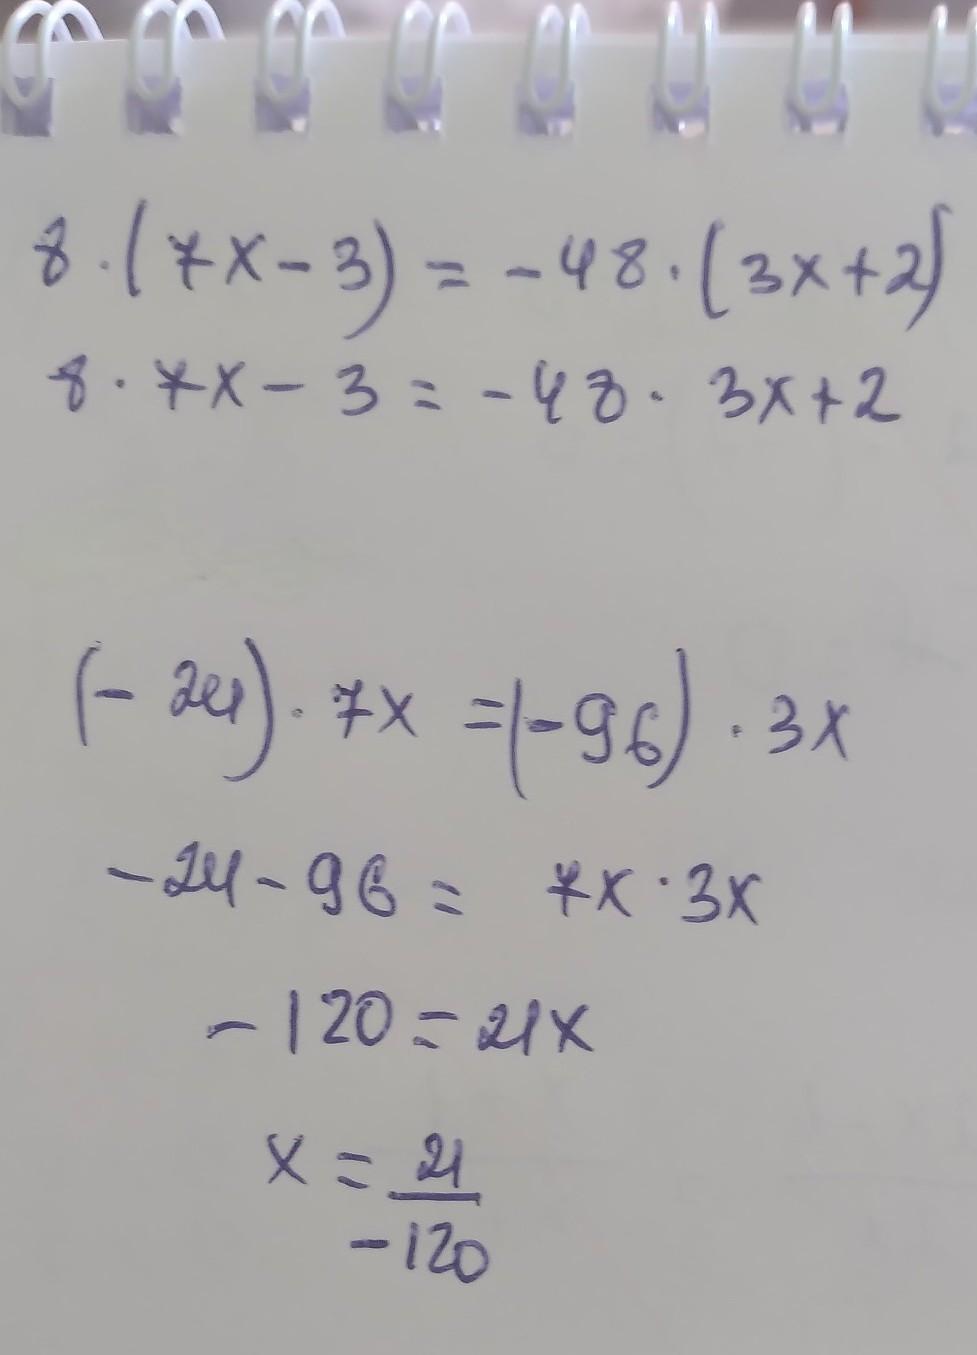 8 · (7x - 3) = -48 · (3x + 2)
8 · 7x - 3 = -48 · 3x + 2
(-24) · 7x = (-96) · 3x
-24 - 96 = 7x · 3x
-120 = 21x
x = 21/-120